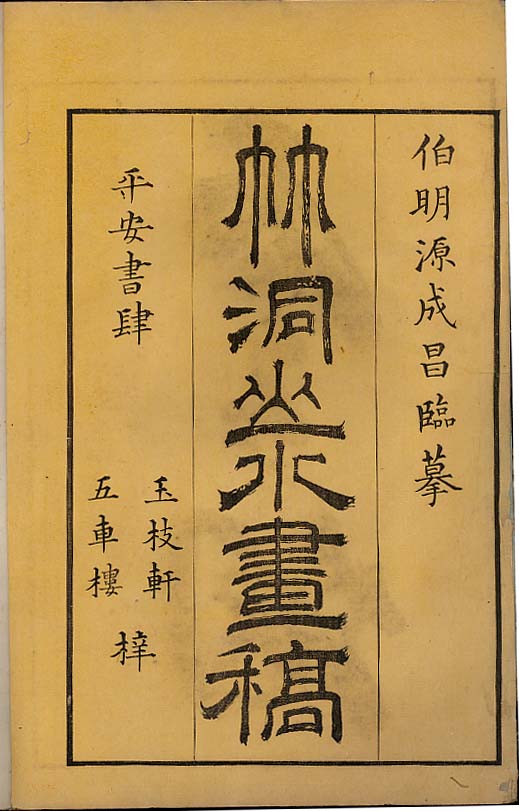 伯明源成昌臨摹
竹洞山水畫稿
平安書肆
玉枝軒
五車樓
梓